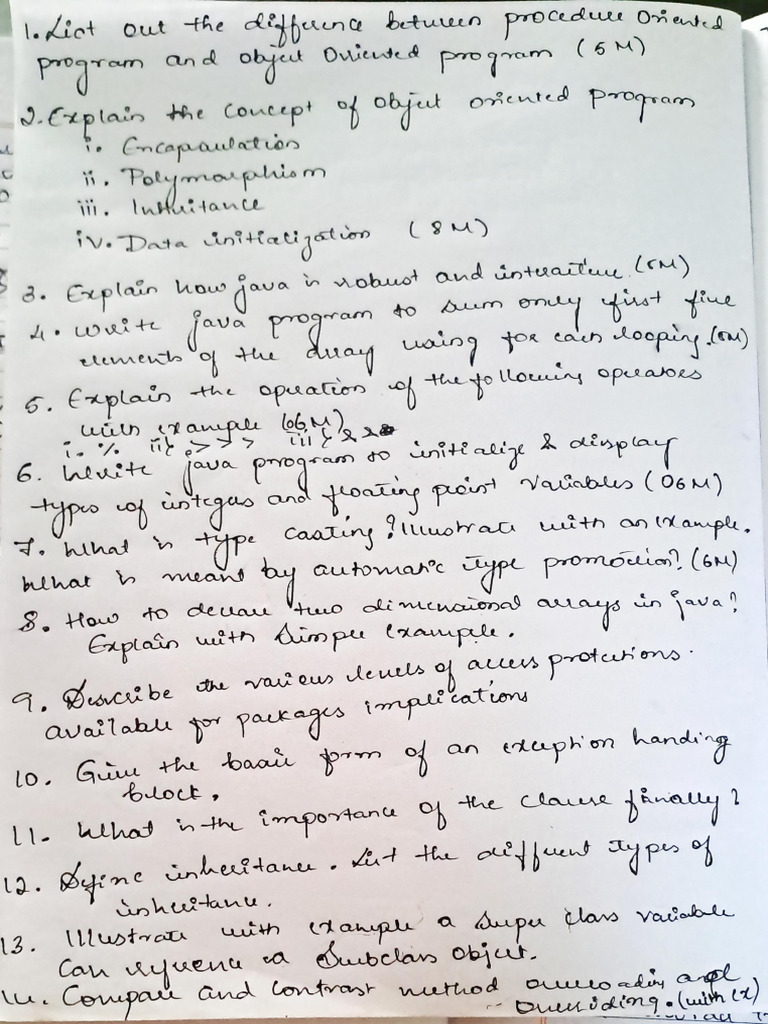 1. List out the difference between procedure Oriented
program and object Oriented program (6M)
2. Explain the concept of object oriented program
i. Encapsulation
ii. Polymorphism
iii. Inheritance
iv. Data initialization (8M)
3. Explain how java is robust and interactive. (6M)
4. Write java program to sum only first five
elements of the array using for each looping. (6M)
5. Explain the operation of the following operators
with example (06M)
i. % ii} >>> iii} &&
6. Write java program to initialize & display
types of integers and floating point variables (06M)
7. What is type casting? Illustrate with an example.
What is meant by automatic type promotion? (6M)
8. How to declare two dimensional arrays in java?
Explain with simple example.
9. Describe the various levels of access protections.
available for packages implications
10. Give the basic form of an exception handing
block.
11. What is the importance of the clause finally?
12. Define inheritance. List the different types of
inheritance.
13. Illustrate with example a super class variable
can reference a Subclass object.
14. Compare and contrast method overloading and
overriding. (with ex)